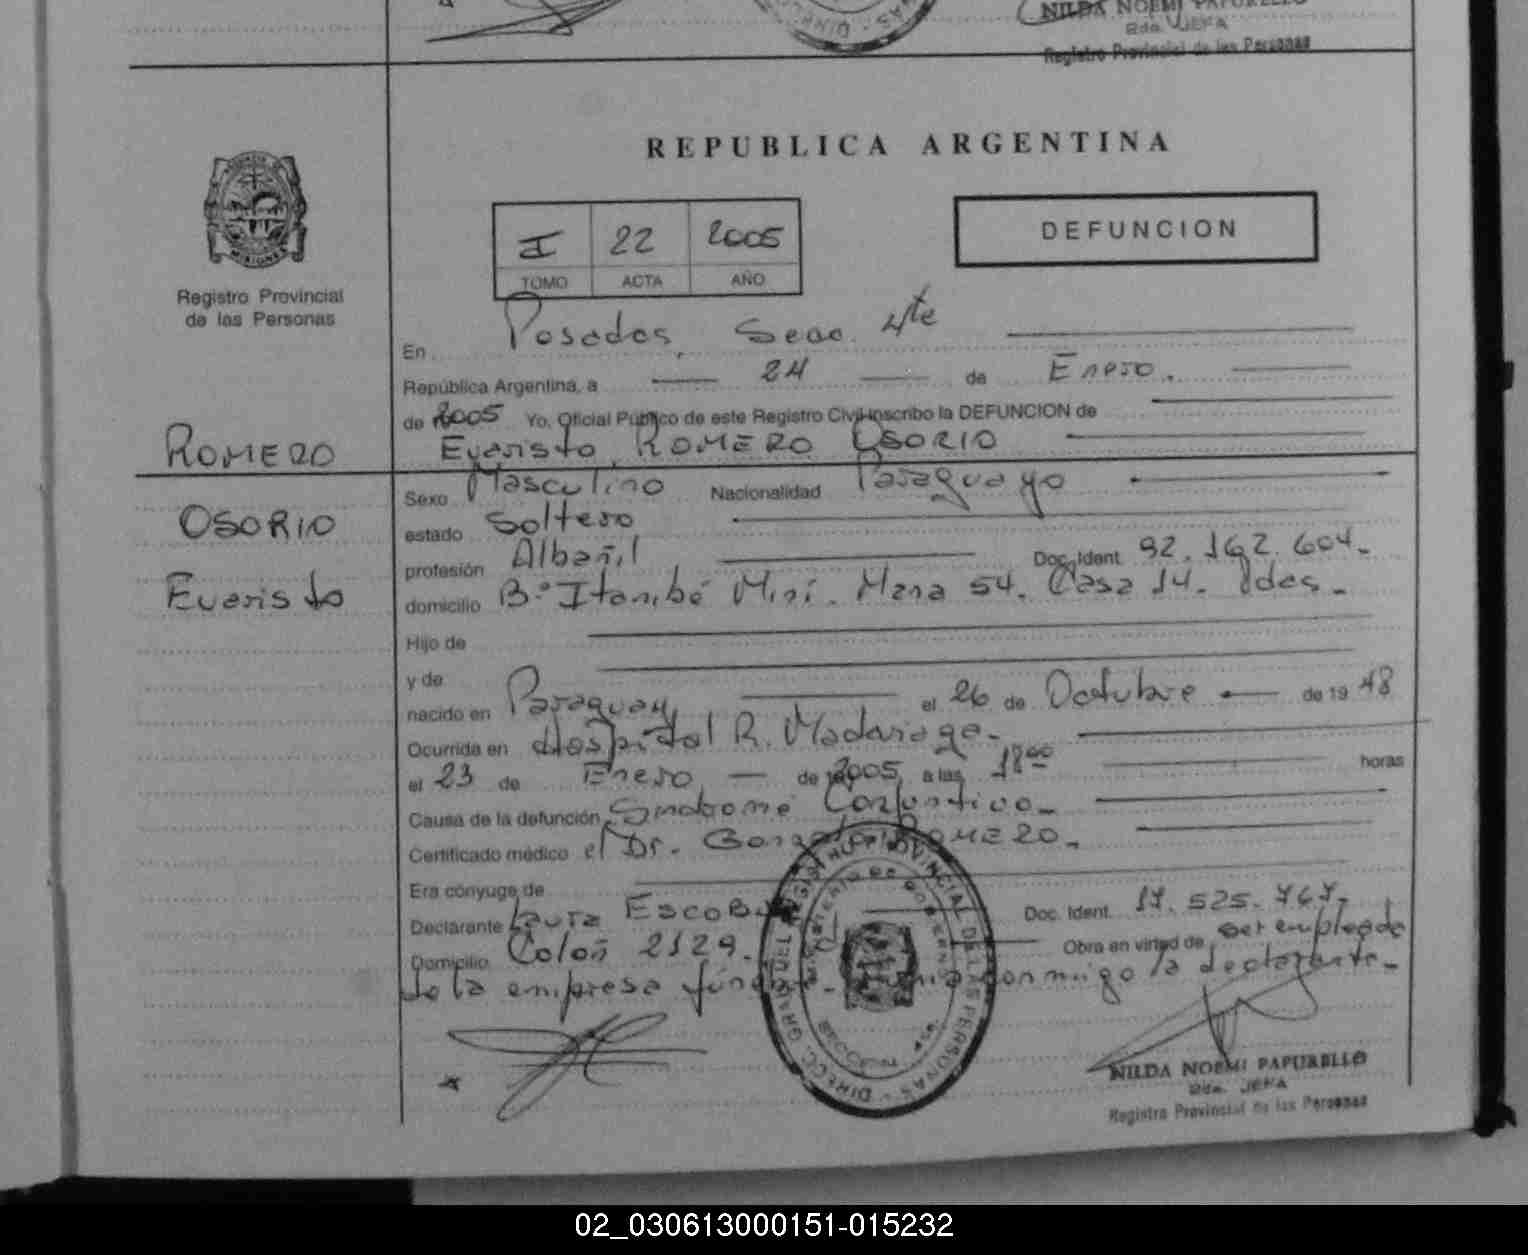 NILDA NOEMI PAPURELLO
2da. JEFA
Registro Provincial de las Personas
REPUBLICA ARGENTINA
I 22 2005
TOMO ACTA AÑO
DEFUNCION
Registro Provincial
de las Personas
En Posadas, Secc. 4te
República Argentina, a 24 de Enero.
de 2005 Yo, Oficial Público de este Registro Civil inscribo la DEFUNCION de
Evaristo ROMERO OSORIO
ROMERO
OSORIO
Evaristo
Sexo Masculino Nacionalidad Paraguayo
estado Soltero
profesión Albañil Doc. Ident. 92.162.604.
domicilio B.º Itambé Miní. Mzna 54. Casa 14. Pdas.
Hijo de
y de
nacido en Paraguay el 26 de Octubre de 19 48
Ocurrida en Hospital R. Madariaga.
el 23 de Enero de 2005 a las 18 00 horas
Causa de la defunción Sindrome
Certificado médico el Dr. Gonzalo ROMERO.
Era cónyuge de
Declarante Laura ESCOBAR Doc. Ident. 17.525.767.
Domicilio Colón 2129. Obra en virtud de ser empleada
de la empresa fúnebre conmigo la declarante.
DIRECC. GRAL. DEL REGISTRO PROVINCIAL DE LAS PERSONAS
MINISTERIO DE GOBIERNO
NILDA NOEMI PAPURELLO
2da. JEFA
Registro Provincial de las Personas
02_030613000151-015232